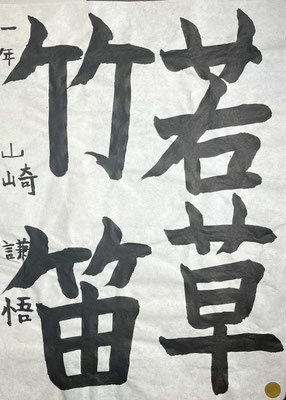 若草
竹笛
一年 山崎 謙悟